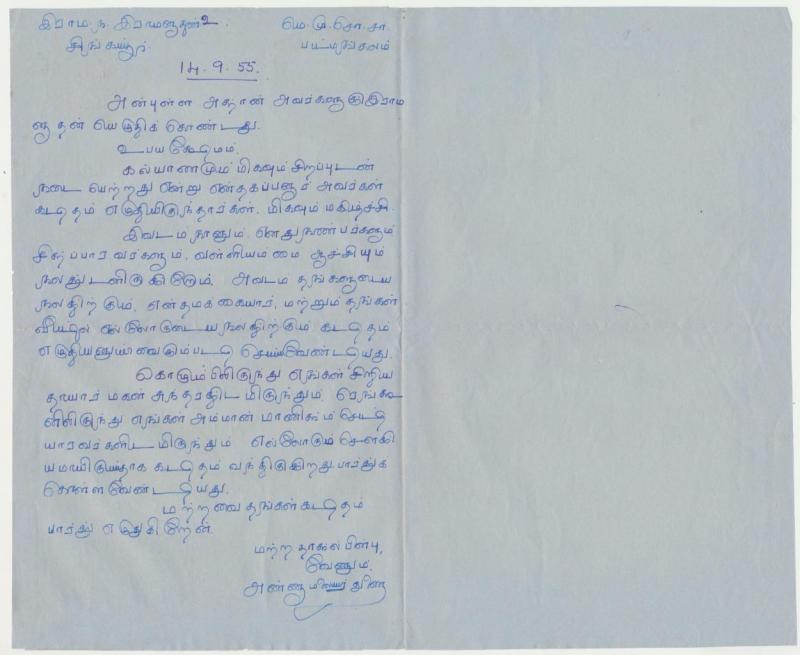 இராம.ந. இராமனாதன் உ மெ.மு.சொ.சா.
சிங்கப்பூர். பட்டமங்கலம்
14.9.55.
அன்புள்ள அத்தான் அவர்களுக்கு இராம
னாதன் யெழுதிக் கொண்டது.
உபய க்ஷேமம்.
கல்யாணமும் மிகவும் சிறப்புடன்
நடை யெற்றது என்று என்தகப்பனார் அவர்கள்
கடிதம் எழுதியிருந்தார்கள். மிகவும் மகிழ்ச்சி.
இவடம் நானும். எனது நண்பர்களும்
சிகப்பாரவர்களும். வள்ளியம்மை ஆச்சியும்
நலத்துடனிருகிறோம். அவடம் தங்களுடைய
நலத்திற்கும். என் தமக்கையார், மற்றும் தங்கள்
வீட்டில் எல்லோருடைய நலத்திற்கும் கடிதம்
எழுதியனுப்பவும்படி செய்யவேண்டியது.
கொழும்பிலிருந்து எங்கள் சிறிய
தாயார் மகள் சுந்தரத்திடமிருந்தும். ரெங்கூ
னிலிருந்து எங்கள் அம்மான் மாணிக்கம் செட்டி
யாரவர்களிடமிருந்தும் எல்லோரும் சௌக்கி
யமாயிருப்பதாக கடிதம் வந்திருகிறது பார்த்துக்
கொள்ள வேண்டியது.
மற்றவை தங்கள் கடிதம்
பார்த்து எழுதுகிறேன்.
மற்ற தாகல் பின்பு,
வேணும்.
அண்ணாமலையார் துணை